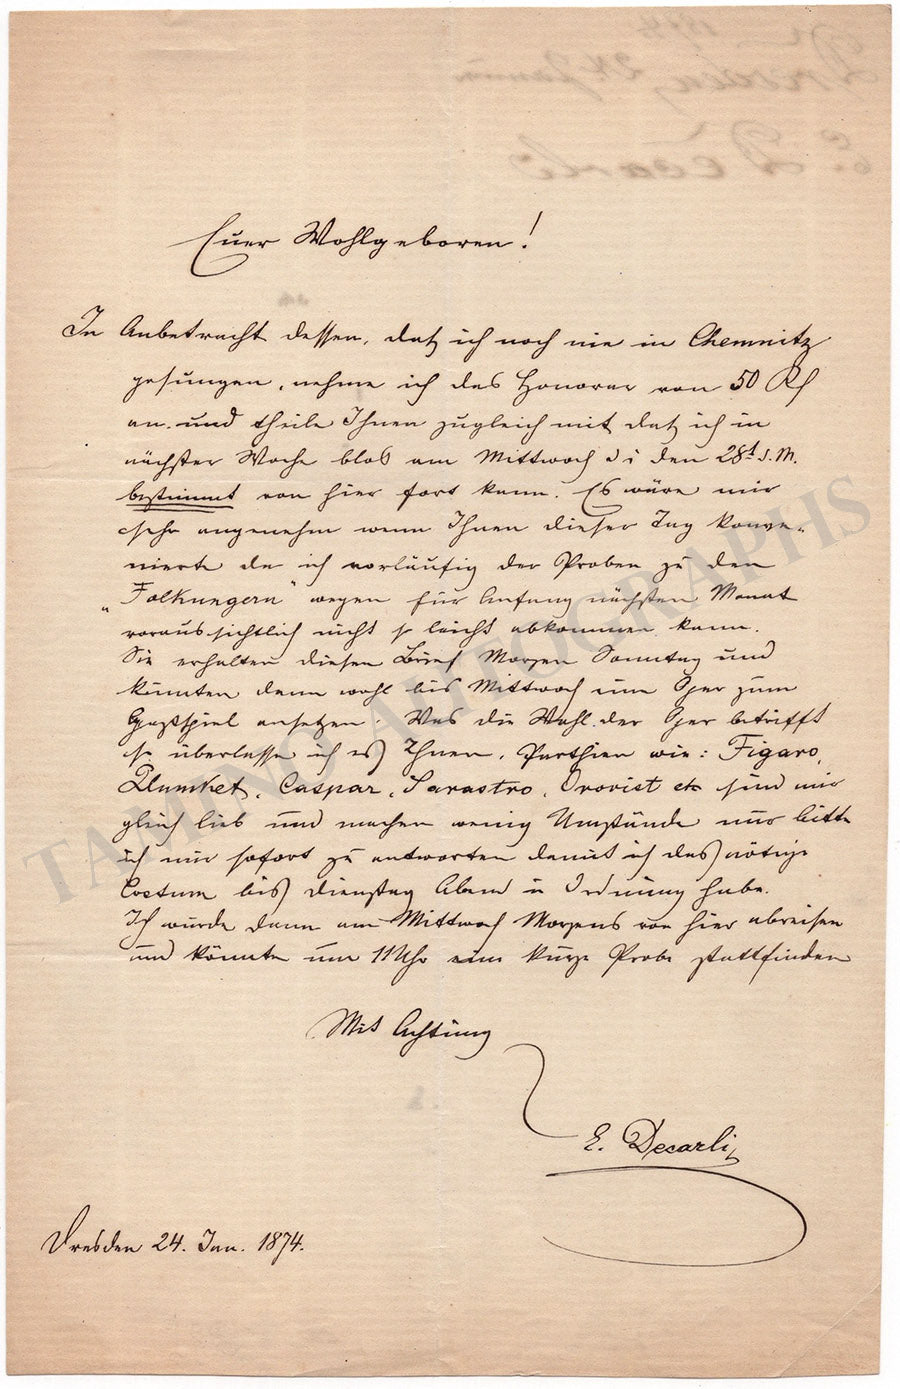 Euer Wohlgeboren!
In Anbetracht dessen, daß ich noch nie in Chemnitz
gesungen, nehme ich das Honorar von 50 Rf
an und theile Ihnen zugleich mit daß ich in
nächster Woche blos am Mittwoch d i den 28t d. M.
bestimmt von hier fort kann. Es wäre mir
sehr angenehm wenn Ihnen dieser Tag konve-
nierte da ich vorläufig der Proben zu den
„Folkungern" wegen für Anfang nächsten Monat
voraussichtlich nicht so leicht abkommen kann.
Sie erhalten diesen Brief Morgen Sonntag und
könnten dann wohl bis Mittwoch eine Oper zum
Gastspiel ansetzen. Was die Wahl der Oper betrifft
so überlasse ich es Ihnen. Parthien wie: Figaro,
Plumket, Caspar, Sarastro, Orovist etc sind mir
gleich lieb und machen wenig Umstände nur bitte
ich nur sofort zu antworten damit ich das nötige
Costum bis Dienstag Abend in Ordnung habe.
Ich würde dann am Mittwoch Morgens von hier abreisen
und könnte um 11 Uhr eine kurze Probe stattfinden
Mit Achtung
E. Decarli
Dresden 24. Jan. 1874.
TAMINO AUTOGRAPHS